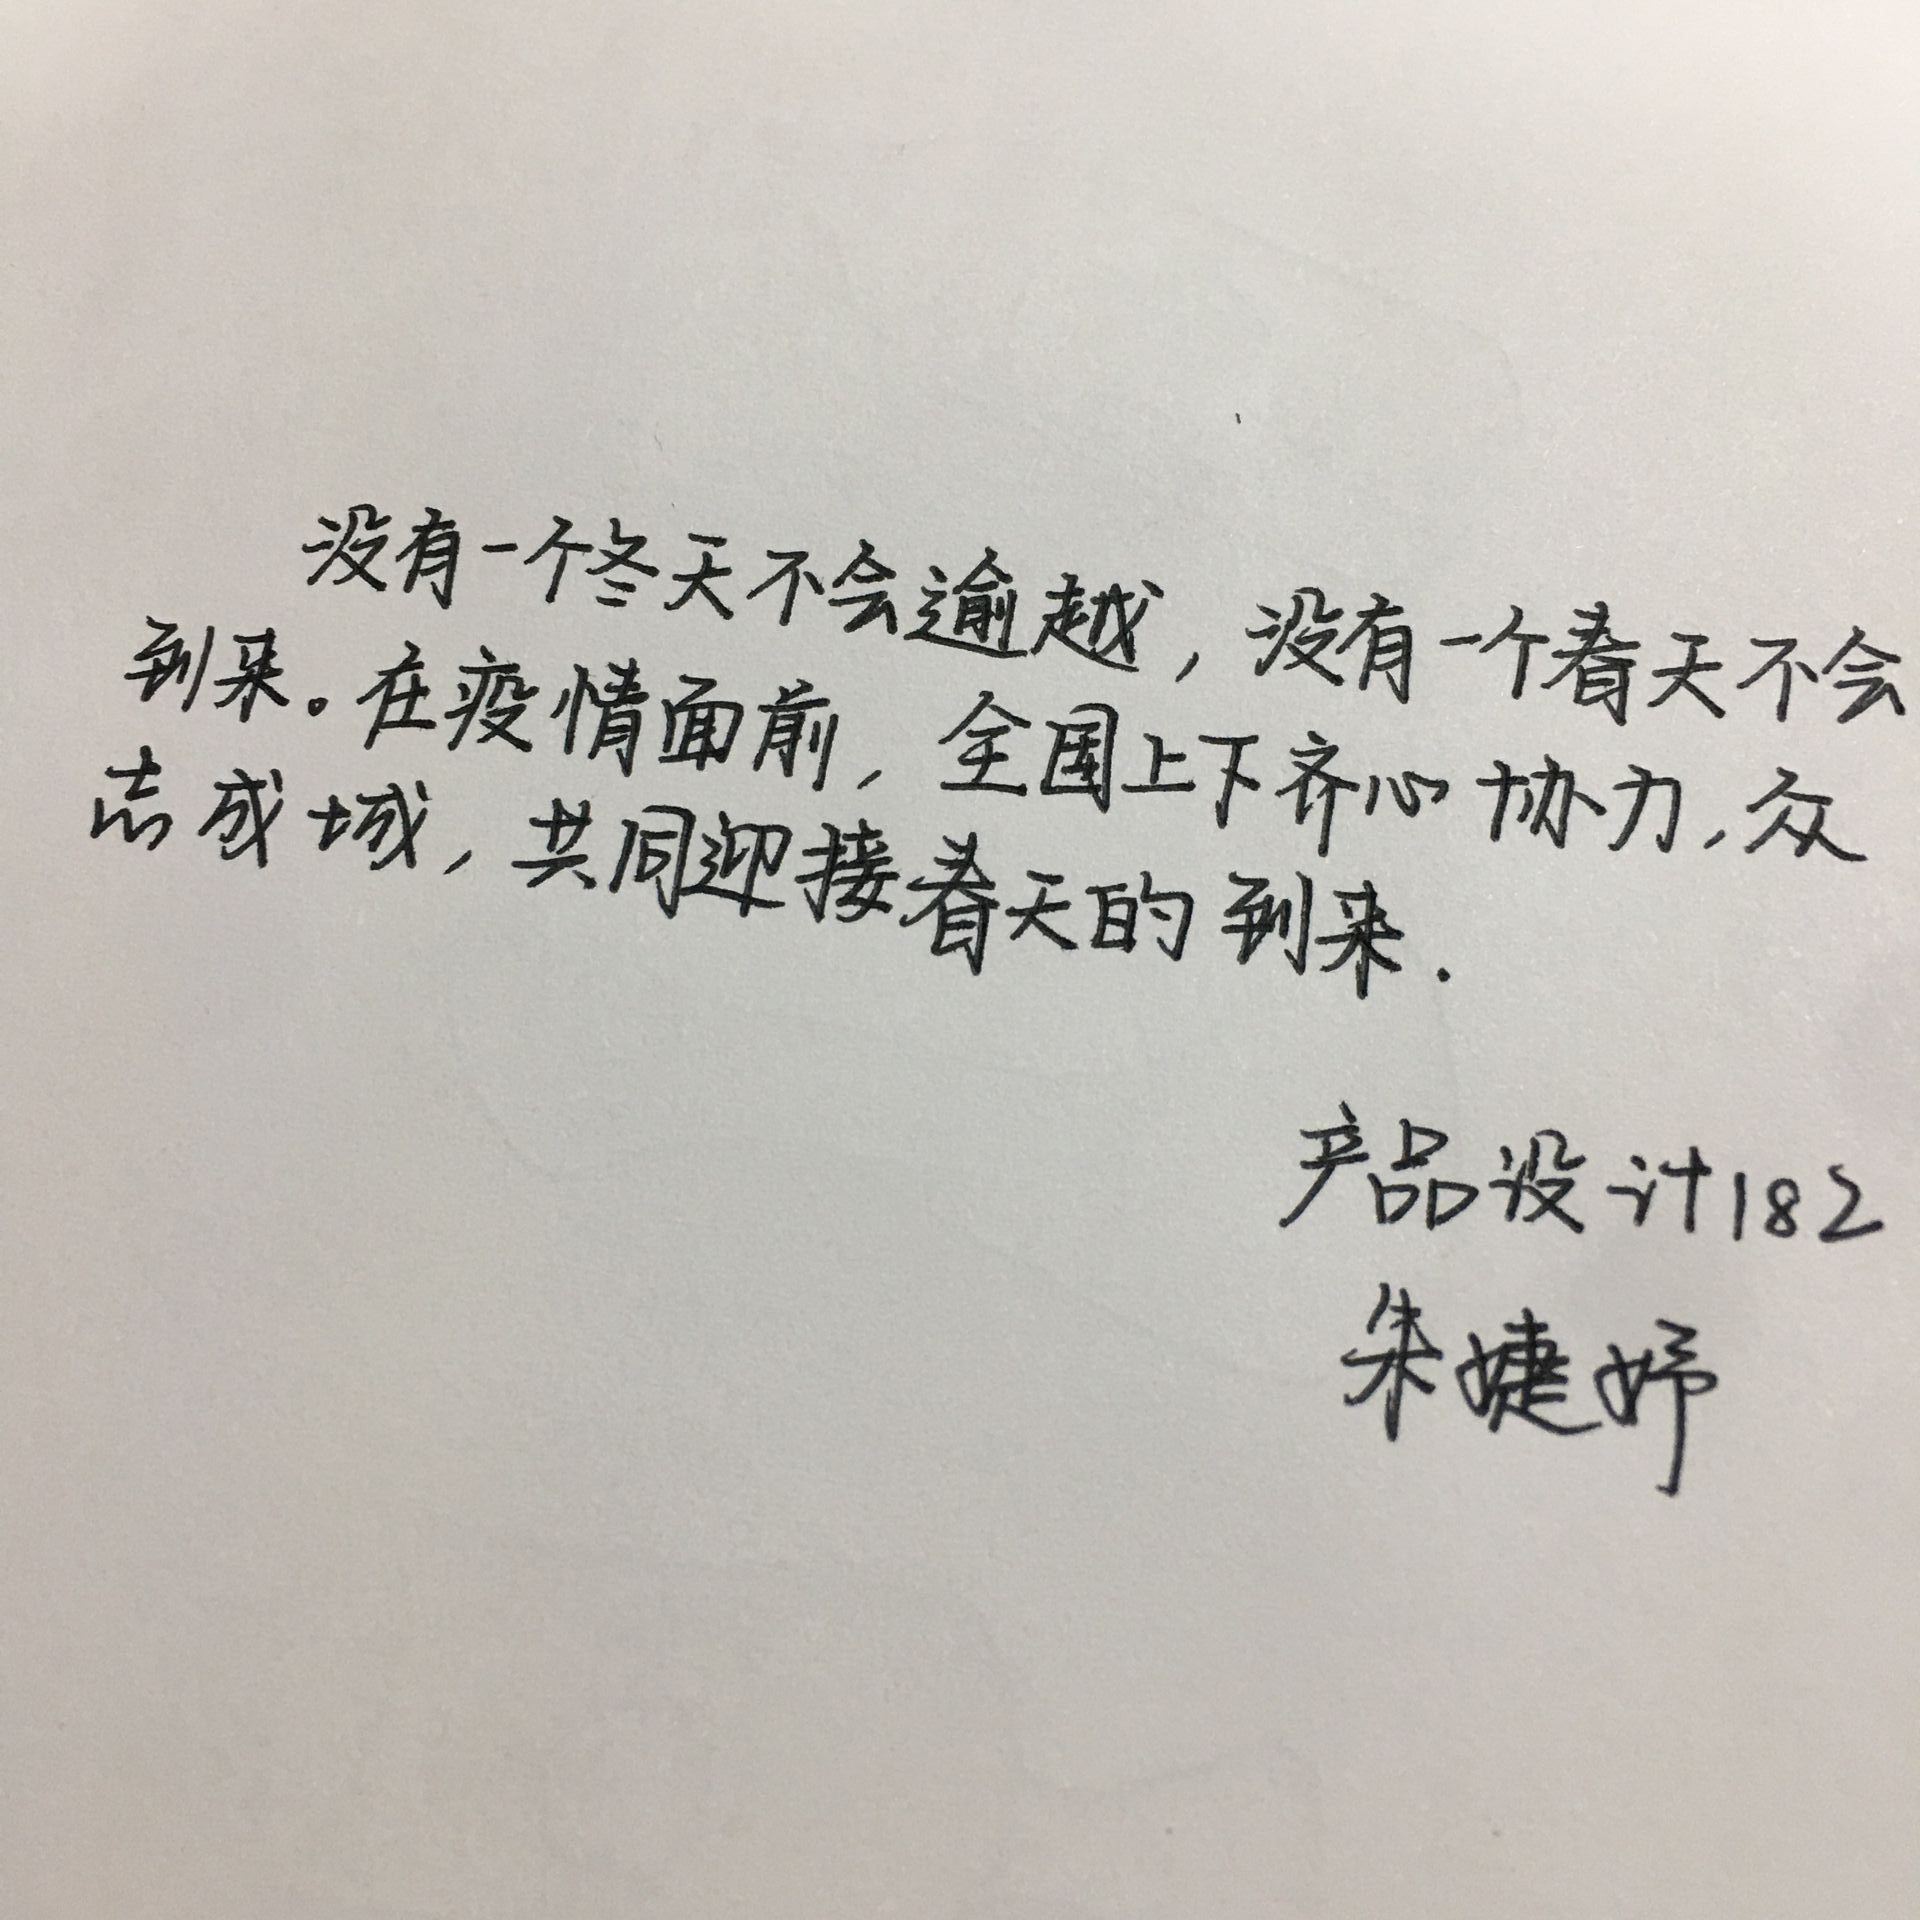 没有一个冬天不会逾越,没有一个春天不会
到来。在疫情面前,全国上下齐心协力,众
志成城,共同迎接春天的到来.
产品设计182
朱婕妤